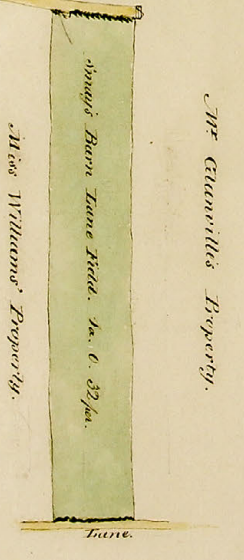 Mr. Granville's Property.
Smay's Barn Lane Field. 1a. 0. 32 per.
Miss Williams' Property.
Lane.